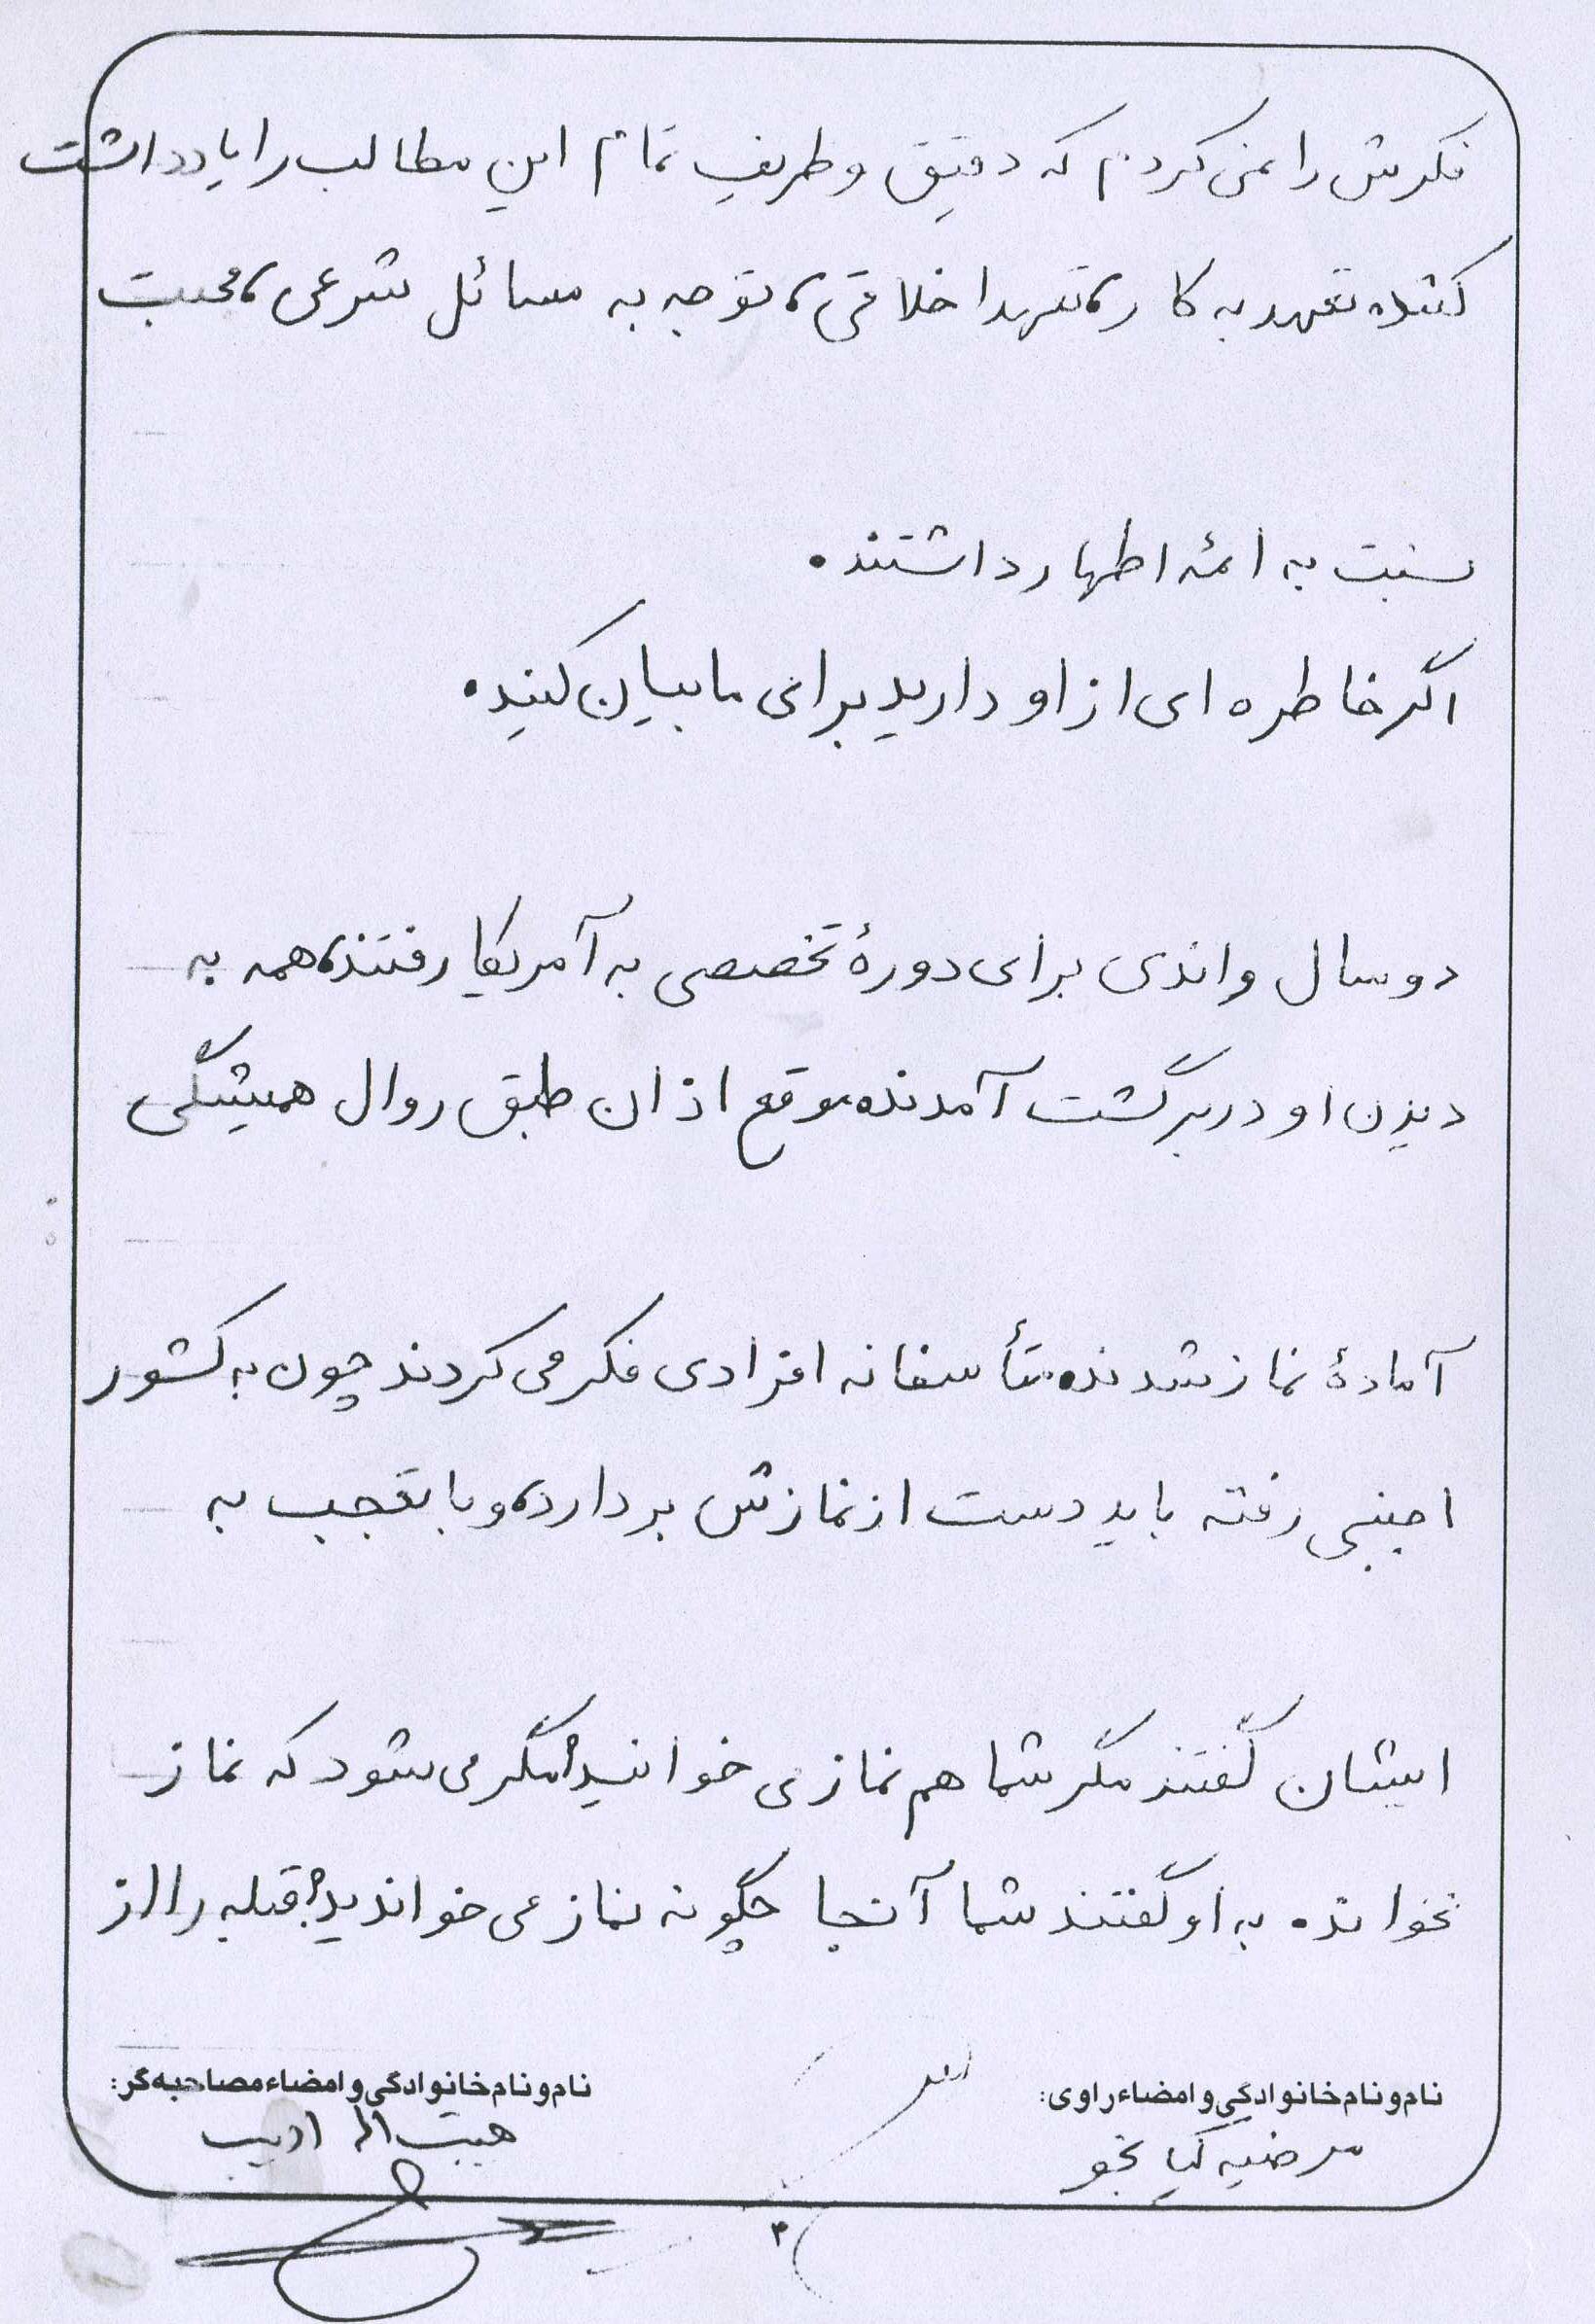 فکرش را نمی کردم که دقیق و ظریف تمام این مطالب را یادداشت
کنند. تعهد به کار، تعهد اخلاقی، توجه به مسائل شرعی، محبت
نسبت به ائمه اظهار داشتند.
اگر خاطره ای از او دارید برای ما بیان کنید.
دو سال و اندی برای دورهٔ تخصصی به آمریکا رفتند، همه به
دیدن او در برگشت آمدند. موقع اذان طبق روال همیشگی
آمادهٔ نماز شدند. متأسفانه افرادی فکر می کردند چون به کشور
اجنبی رفته باید دست از نمازش بردارد، و با تعجب به
ایشان گفتند مگر شما هم نماز می خوانید؟ مگر می شود که نماز
نخوانده به او گفتند شما آنجا چگونه نماز می خواندید؟ قبله را از
نام و نام خانوادگی و امضاء راوی:
نام و نام خانوادگی و امضاء مصاحبه گر:
مرضیه کیا نجو
هیبت اله ادیب
۳